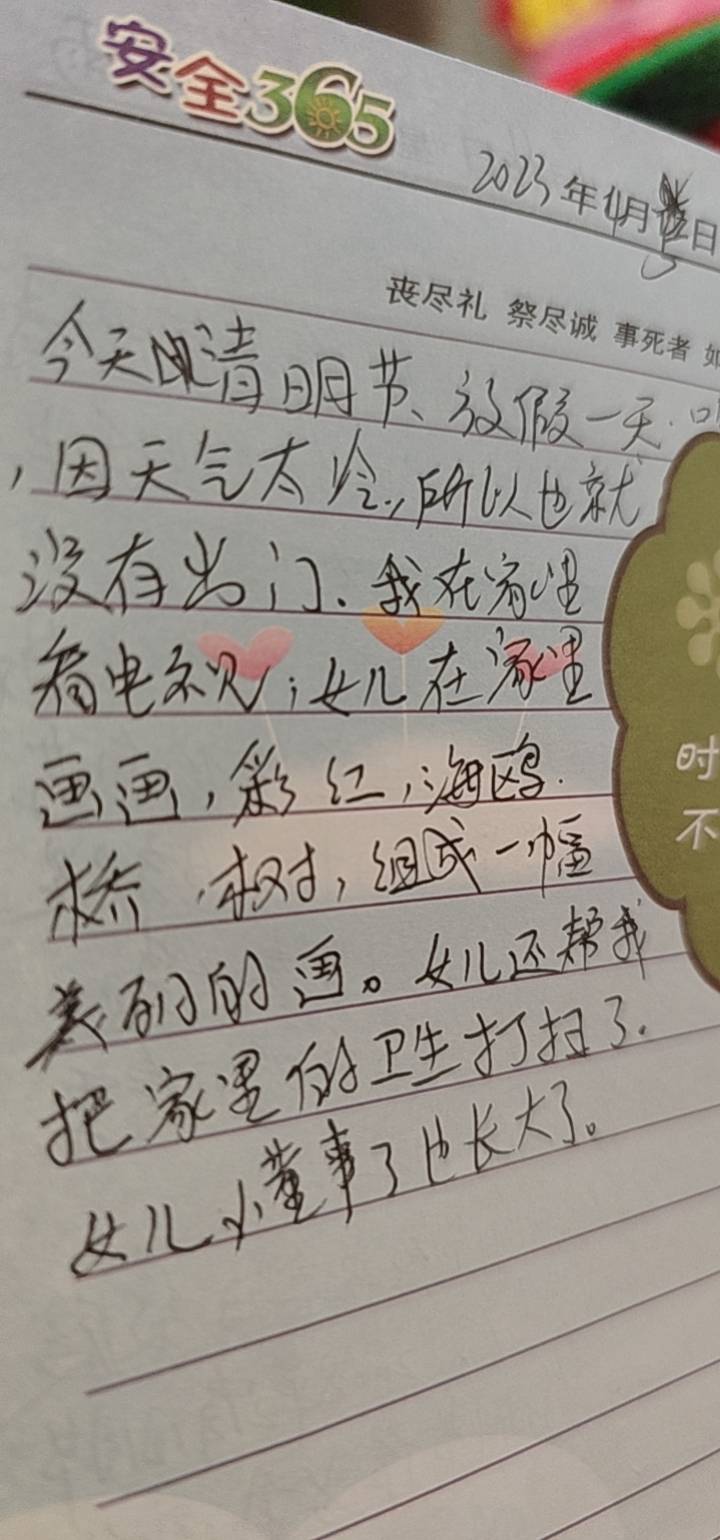 安全365
2023年4月 日
丧尽礼 祭尽诚 事死者 如
今天清明节、放假一天.
，因天气太冷.,所以也就
没有出门.我在家里
看电视;女儿在家里
画画,彩红,海鸥.
桥,树,组成一幅
美丽的画。女儿还帮我
把家里的卫生打扫了.
女儿小董事了也长大了。
时
不